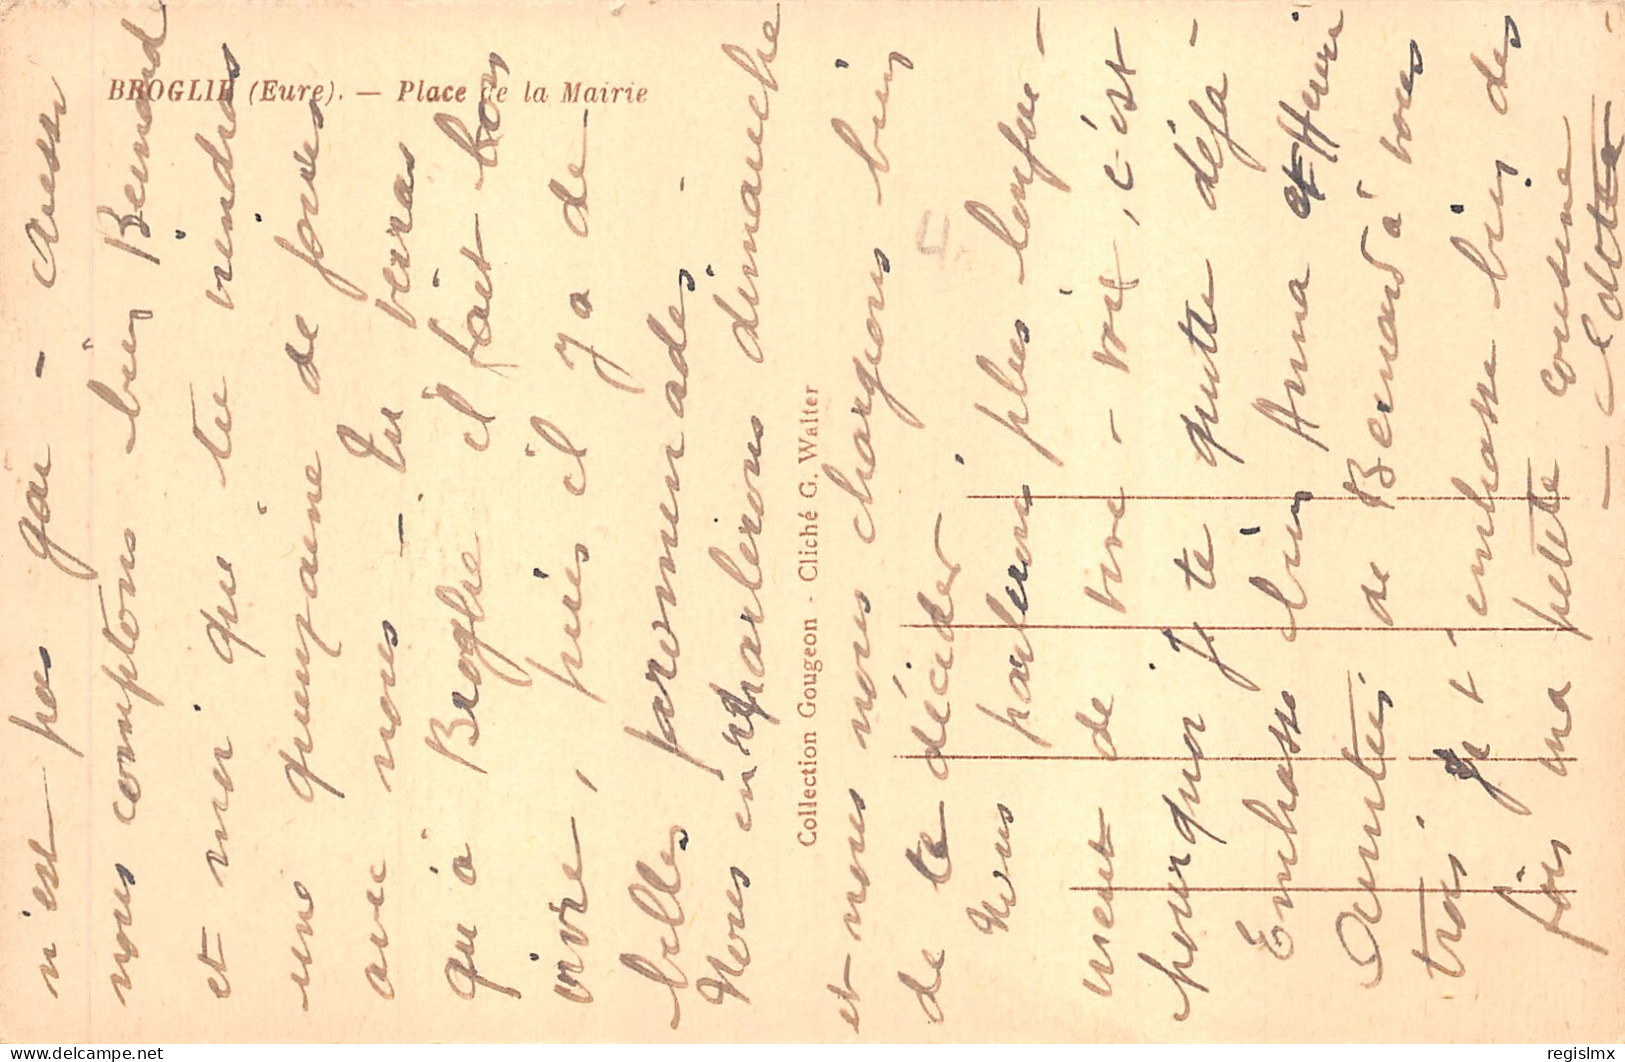 BROGLIE (Eure). — Place de la Mairie
n'est pas gai - aussi
nous comptons bien Bernard
et moi que tu viendras
une quinzaine de jours
avec nous - Tu verras
qu'à Broglie il fait bon
vivre, puis il y a de
belles promenades -
Nous en reparlerons dimanche
Collection Gougeon - Cliché G. Walter
et nous nous chargeons bien
de te décider
Nous parlerons plus longue-
ment de vive-voix, c'est
pourquoi je te quitte déjà -
Embrasse bien Anna et Henri
Amitiés de Bernard à vous
trois Je t'embrasse bien des
fois ma petite cousine
- Odette -
regislmx